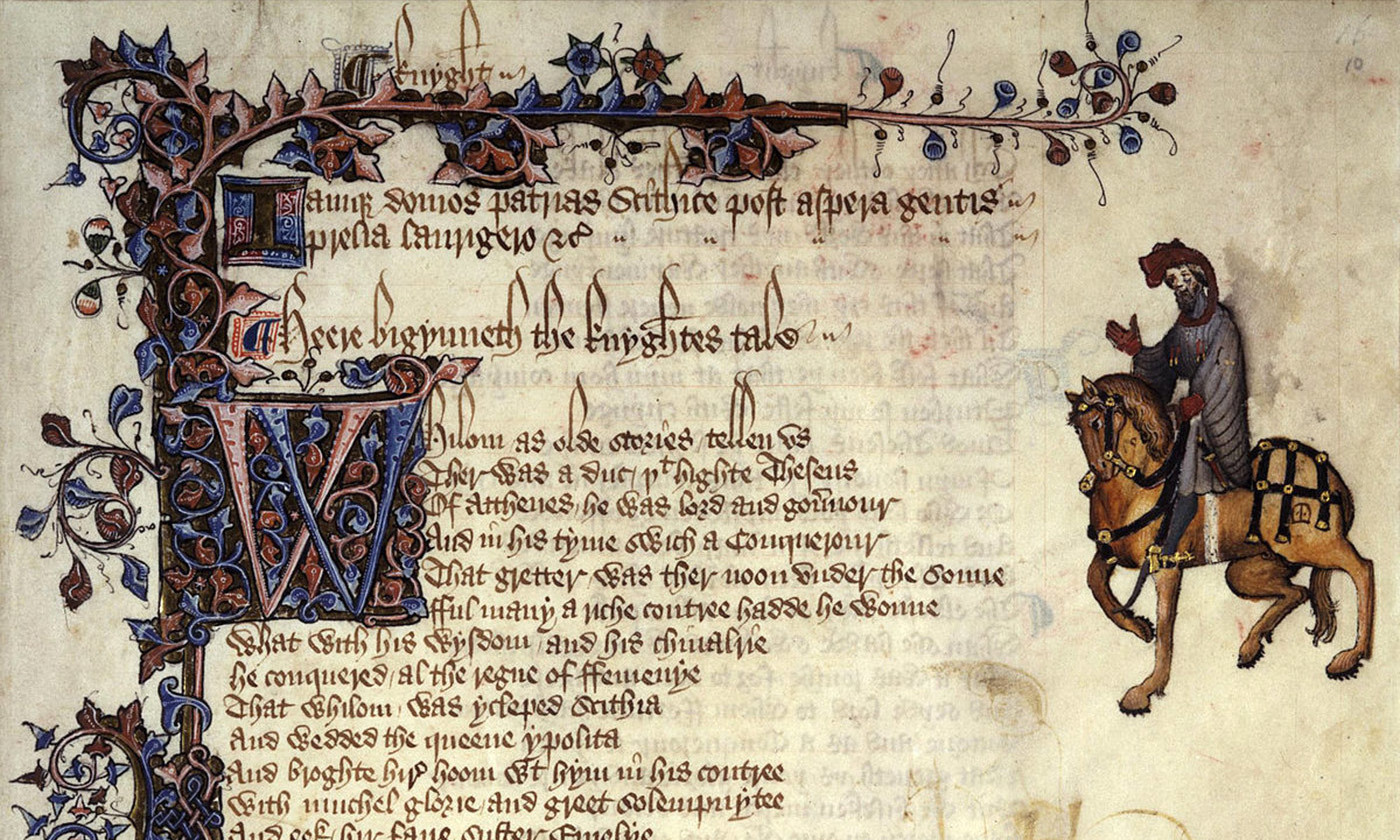 ¶ knyght
Iamqꝫ domos patrias Scithice post aspera gentis
prelia laurigero ⁊c̄
¶ Heere bigynneth the knyghtes tale
Whilom as olde stories / tellen vs
Ther was a duc / þᵗ highte Theseus
Of Atthenes / he was lord and goũnour
And in his tyme swich a Conquerour
That gretter was ther noon vnder the sonne
fful many a riche contree hadde he wonne
What with his wysdom / and his chiualrie
he conquered / al the regne of ffemenye
That whilom / was ycleped Scithia
And wedded the queene ypolita
And broghte hir̛ hoom wᵗ hym in his contree
With muchel glorie / and greet solempnytee
And eek hir faire suster Emelye
10